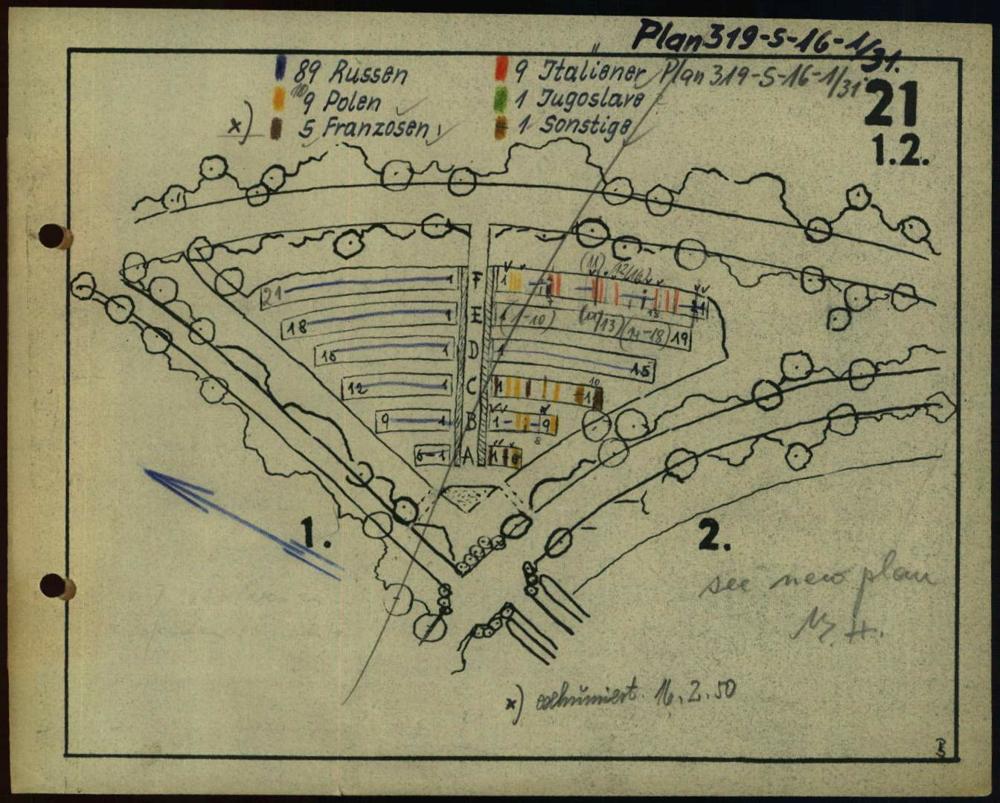 Plan 319-S-16-1/31.
Plan 319-S-16-1/31
21
1.2.
89 Russen
10 9 Polen
x) 5 Franzosen
9 Italiener
1 Jugoslave
1 Sonstige
(11) 12/16
21 1 F 1
18 1 E 1 (1-10) (11/13) (14-18) 19
15 1 D 1 15
12 1 C 1 10
9 1 B 1-9
8
6-1 A
1. 2.
see new plan
x) exhumiert 16.2.50